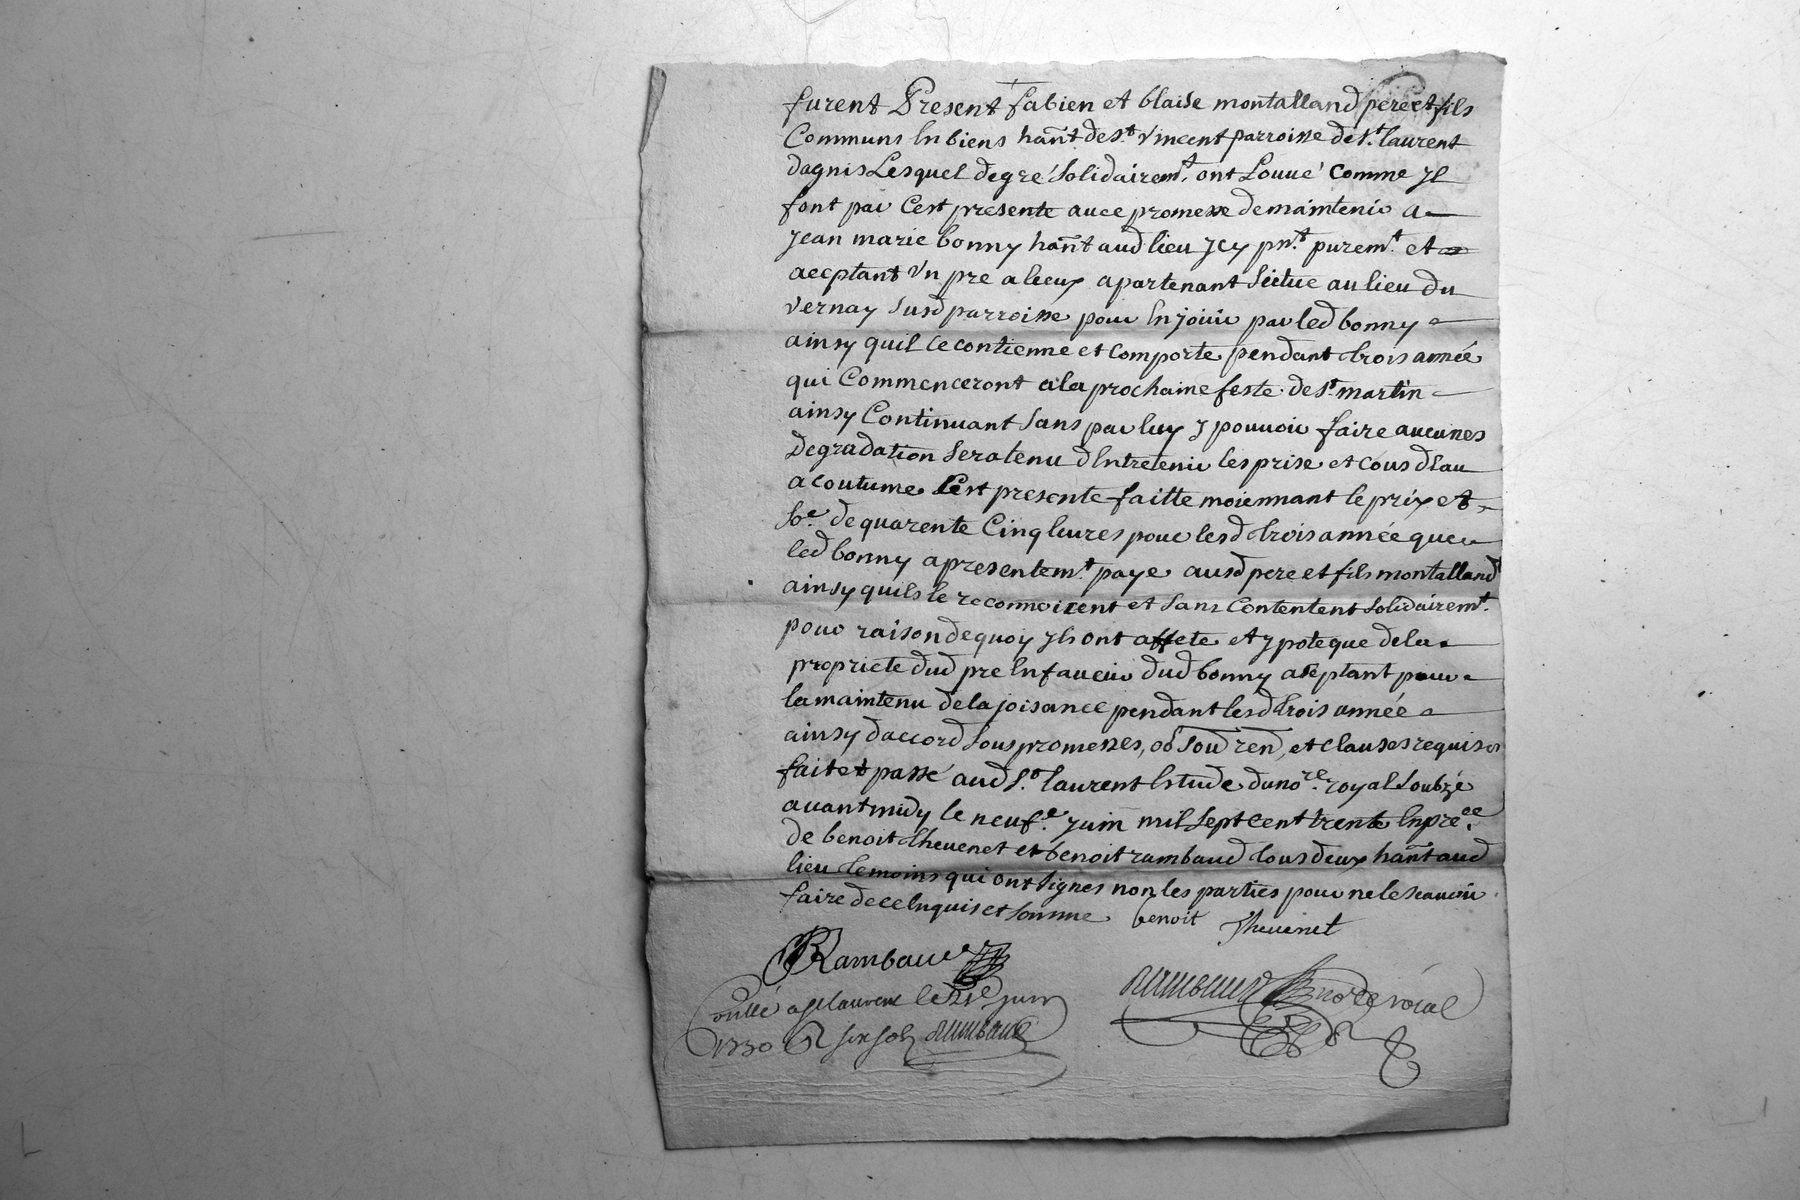 furent Present fabien et blaise montalland pere et fils
Communs En biens hant de st vincent parroisse de st laurent
dagnis Lesquel de gré solidairemt ont Louué comme Jl
font par Cest presente auec promesse de maintenir a
Jean marie bonny hant aud lieu Jcy pnt puremt et
accptant Vn pre a leux apartenant scitue au lieu du
vernay susd parroisse pour En jouir par led bonny
ainsy quil ce contienne et comporte pendant trois année
qui Commenceront a la prochaine feste de st martin
ainsy Continuant sans par luy y pouuoir faire aucunes
Degradation sera tenu dEntretenir les prise et cous dEau
acoutume Cest presente faitte moiennant le prix et
soe de quarente Cinq liures pour lesd trois année que
led bonny a presentemt paye ausd pere et fils montalland
ainsy quils le reconnoicent et sans Contentent solidairemt
pour raison de quoy Jls ont affete et ypoteque de la
propriete dud pre En faueur dud bonny aseptant pour
la maintenu de la joisance pendant lesd trois année
ainsy daccord sous promesses, ob soud ren, et clauses requises
fait et passé aud st laurent Estude du nore royal soubzé
auant midy le neufe juin mil sept cent trente En prece
de benoit theuenet et benoit rambaud tous deux hant aud
lieu temoins qui ont signes non les parties pour ne le scauoir
faire de ce Enquis et somme benoit theuenet
Rambaud
Rambaud nore roial
Conllé a st laurent le 21e juin
1730 R six sols Rambaud